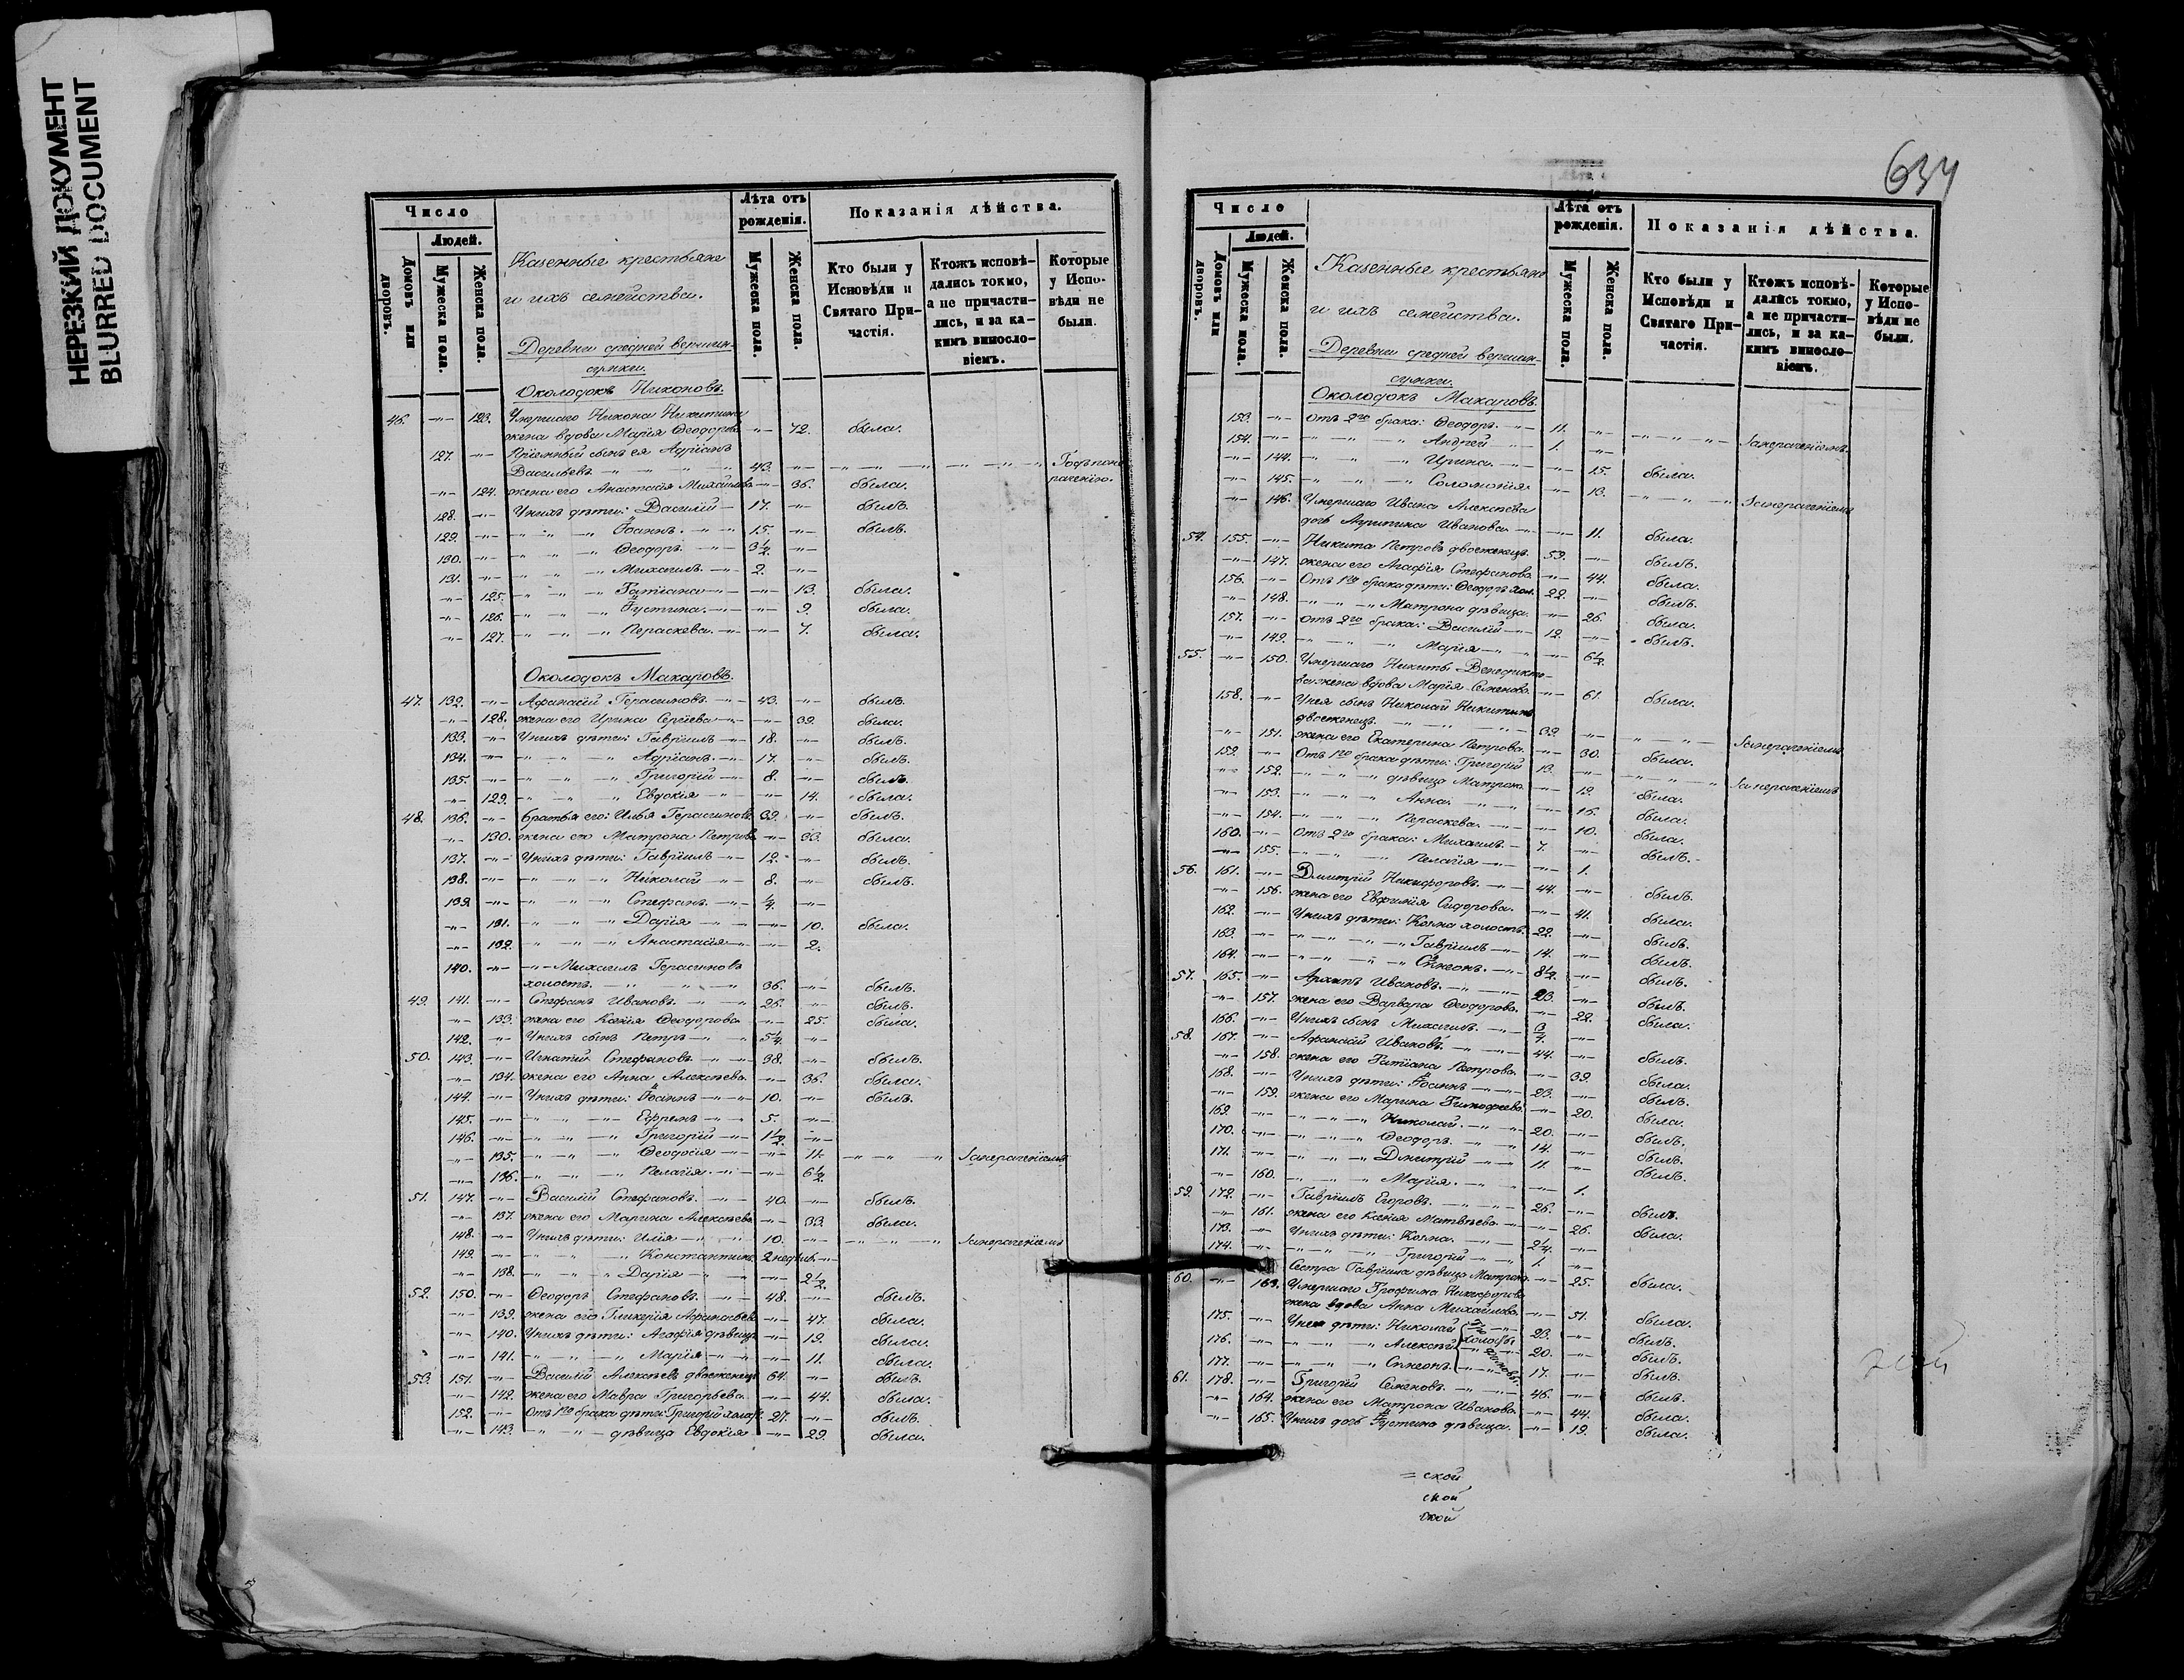 НЕРЕЗКИЙ ДОКУМЕНТ
BLURRED DOCUMENT
Число
Людей.
Домовъ или дворовъ.
Мужеска пола.
Женска пола.
Казенные крестьяне
и ихъ семейства.
Деревни средней вершин-
сумки.
Околодокъ Никоновъ.
Лѣта отъ рожденія.
Мужеска пола.
Женска пола.
Показанія дѣйства.
Кто были у Исповѣди и Святаго Причастія.
Ктожъ исповѣ-дались токмо, а не причасти-лись, и за ка-кимъ винословіемъ.
Которые у Испо-вѣди не были.
46. -"- 123. Умершаго Никона Никитина
жена вдова Марія Ѳеодорова -"- 72. была.
127. -"- Пріемный сынъ ея Адріанъ
Васильевъ -"- 43. -"-
-"- 124. жена его Анастасія Михайлова -"- 36. была.
128. -"- У нихъ дѣти: Василій 17. -"- былъ.
129. -"- Іоаннъ. 15. -"- былъ.
130. -"- Ѳеодоръ. 3½ -"-
131. -"- Михаилъ. 2. -"-
-"- 125. Татіана -"- 13. была.
-"- 126. Іустина. -"- 9. была.
-"- 127. Параскева. -"- 7. была.
Околодокъ Макаровъ.
47. 132. -"- Афанасій Герасимовъ. 43. -"- былъ.
-"- 128. жена его Ирина Сергіева -"- 39. была.
133. -"- У нихъ дѣти: Гавріилъ 18. -"- былъ.
134. -"- Адріанъ. 17. -"- былъ.
135. -"- Григорій 8. -"- былъ.
-"- 129. Евдокія -"- 14. была.
48. 136. -"- братья его: Илья Герасимовъ 39. -"- былъ.
-"- 130. жена его Матрона Петрова -"- 33. была.
137. -"- У нихъ дѣти: Гавріилъ 12. -"- былъ.
138. -"- Николай 8. -"- былъ.
139. -"- Стефанъ. ¼ -"-
-"- 131. Дарія -"- 10. была.
-"- 132. Анастасія -"- 2.
140. -"- Михаилъ Герасимовъ
холостъ. 36. -"- былъ.
49. 141. -"- Стефанъ Ивановъ. 26. -"- былъ.
-"- 133. жена его Ксенія Ѳеодорова -"- 25. была.
142. -"- У нихъ сынъ Петръ 5¼ -"-
50. 143. -"- Игнатій Стефановъ 38. -"- былъ.
-"- 134. жена его Анна Алексѣева. -"- 36. была.
144. -"- У нихъ дѣти: Іоаннъ 10. -"- былъ.
145. -"- Ефремъ 5. -"-
146. -"- Григорій 1½ -"-
-"- 135. Ѳеодосія -"- 11. За нераченіемъ
-"- 136. Пелагія. -"- 6½
51. 147. -"- Василій Стефановъ. 40. -"- былъ.
-"- 137. жена его Марина Алексѣева -"- 33. была.
148. -"- У нихъ дѣти: Илія 10. -"- За нераченіемъ
149. -"- Константинъ. 2 недѣль -"-
-"- 138. Дарія -"- 2½
52. 150. -"- Ѳеодоръ Стефановъ. 48. -"- былъ.
-"- 139. жена его Гликерія Афанасьева -"- 47. была.
-"- 140. У нихъ дѣти: Агафія дѣвица -"- 19. была.
-"- 141. Марія -"- 11. была.
53. 151. -"- Василій Алексѣевъ двоеженецъ 64. -"- былъ.
-"- 142. жена его Мавра Григорьева. -"- 44. была.
152. -"- Отъ 1го брака дѣти: Григорій холос. 27. -"- былъ.
-"- 143. дѣвица Евдокія -"- 29. была.
634
Число
Людей.
Домовъ или дворовъ.
Мужеска пола.
Женска пола.
Казенные крестьяне
и ихъ семейства.
Деревни средней вершин-
сумки.
Околодокъ Макаровъ.
Лѣта отъ рожденія.
Мужеска пола.
Женска пола.
Показанія дѣйства.
Кто были у Исповѣди и Святаго Причастія.
Ктожъ исповѣ-дались токмо, а не причасти-лись, и за ка-кимъ винословіемъ.
Которые у Испо-вѣди не были.
153. -"- Отъ 2го брака: Ѳеодоръ. 11. -"- За нераченіемъ.
154. -"- Андрей 1. -"-
-"- 144. Ирина. -"- 15. была.
-"- 145. Соломонія -"- 13. За нераченіемъ
-"- 146. Умершаго Ивана Алексѣева
дочь Агрипина Иванова. -"- 11. была.
54. 155. -"- Никита Петровъ двоеженецъ. 53. -"- былъ.
-"- 147. жена его Агафія Стефанова -"- 44. была.
156. -"- Отъ 1го брака дѣти: Ѳеодоръ хол. 22. -"- былъ.
-"- 148. Матрона дѣвица. -"- 26. была.
157. -"- Отъ 2го брака: Василій 12. -"- былъ.
-"- 149. Марія -"- 6½
55. -"- 150. Умершаго Никиты Венедикто-
ва жена вдова Марія Семенова. -"- 61. была.
158. -"- У нея сынъ Николай Никитинъ
двоеженецъ. 39. -"- За нераченіемъ
-"- 151. жена его Екатерина Петрова. -"- 30. была.
159. -"- Отъ 1го брака дѣти: Григорій 13. -"- За нераченіемъ
-"- 152. дѣвица Матрона. -"- 19. была.
-"- 153. Анна. -"- 16. была.
-"- 154. Параскева. -"- 10. была.
160. -"- Отъ 2го брака: Михаилъ 7. -"- былъ.
-"- 155. Пелагія -"- 1.
56. 161. -"- Дмитрій Никифоровъ. 44. -"- былъ.
-"- 156. жена его Евфимія Сидорова. -"- 41. была.
162. -"- У нихъ дѣти: Козма холостъ. 22. -"- былъ.
163. -"- Гавріилъ 14. -"- былъ.
164. -"- Симеонъ. 8½ -"- былъ.
57. 165. -"- Архипъ Ивановъ. 23. -"- былъ.
-"- 157. жена его Варвара Ѳеодорова. -"- 22. была.
166. -"- У нихъ сынъ Михаилъ. ¾ -"-
58. 167. -"- Афанасій Ивановъ. 44. -"- былъ.
-"- 158. жена его Татіана Петрова. -"- 39. была.
168. -"- У нихъ дѣти: Іоаннъ 23. -"- былъ.
-"- 159. жена его Марина Тимофеева. -"- 20. была.
169. -"- Николай. 20. -"- былъ.
170. -"- Ѳеодоръ. 14. -"- былъ.
171. -"- Дмитрій 11. -"- былъ.
-"- 160. Марія. -"- 1.
59. 172. -"- Гавріилъ Егоровъ. 26. -"- былъ.
-"- 161. жена его Ксенія Матвѣева. -"- 26. была.
173. -"- У нихъ дѣти: Козма. 2¼ -"-
174. -"- Григорій 1. -"-
Сестра Гавріила дѣвица Матрона. -"- 25. была.
60. -"- 163. Умершаго Трофима Никифорова
жена вдова Анна Михайлова. -"- 51. была.
175. -"- У нея дѣти: Николай 23. -"- былъ.
176. -"- Алексѣй холосты 20. -"- былъ.
177. -"- Симеонъ. 17. -"- былъ.
61. 178. -"- Григорій Семеновъ. 46. -"- былъ.
-"- 164. жена его Матрона Иванова. -"- 44. была.
-"- 165. У нихъ дочь Іустина дѣвица. -"- 19. была.
= ской
ской
ской